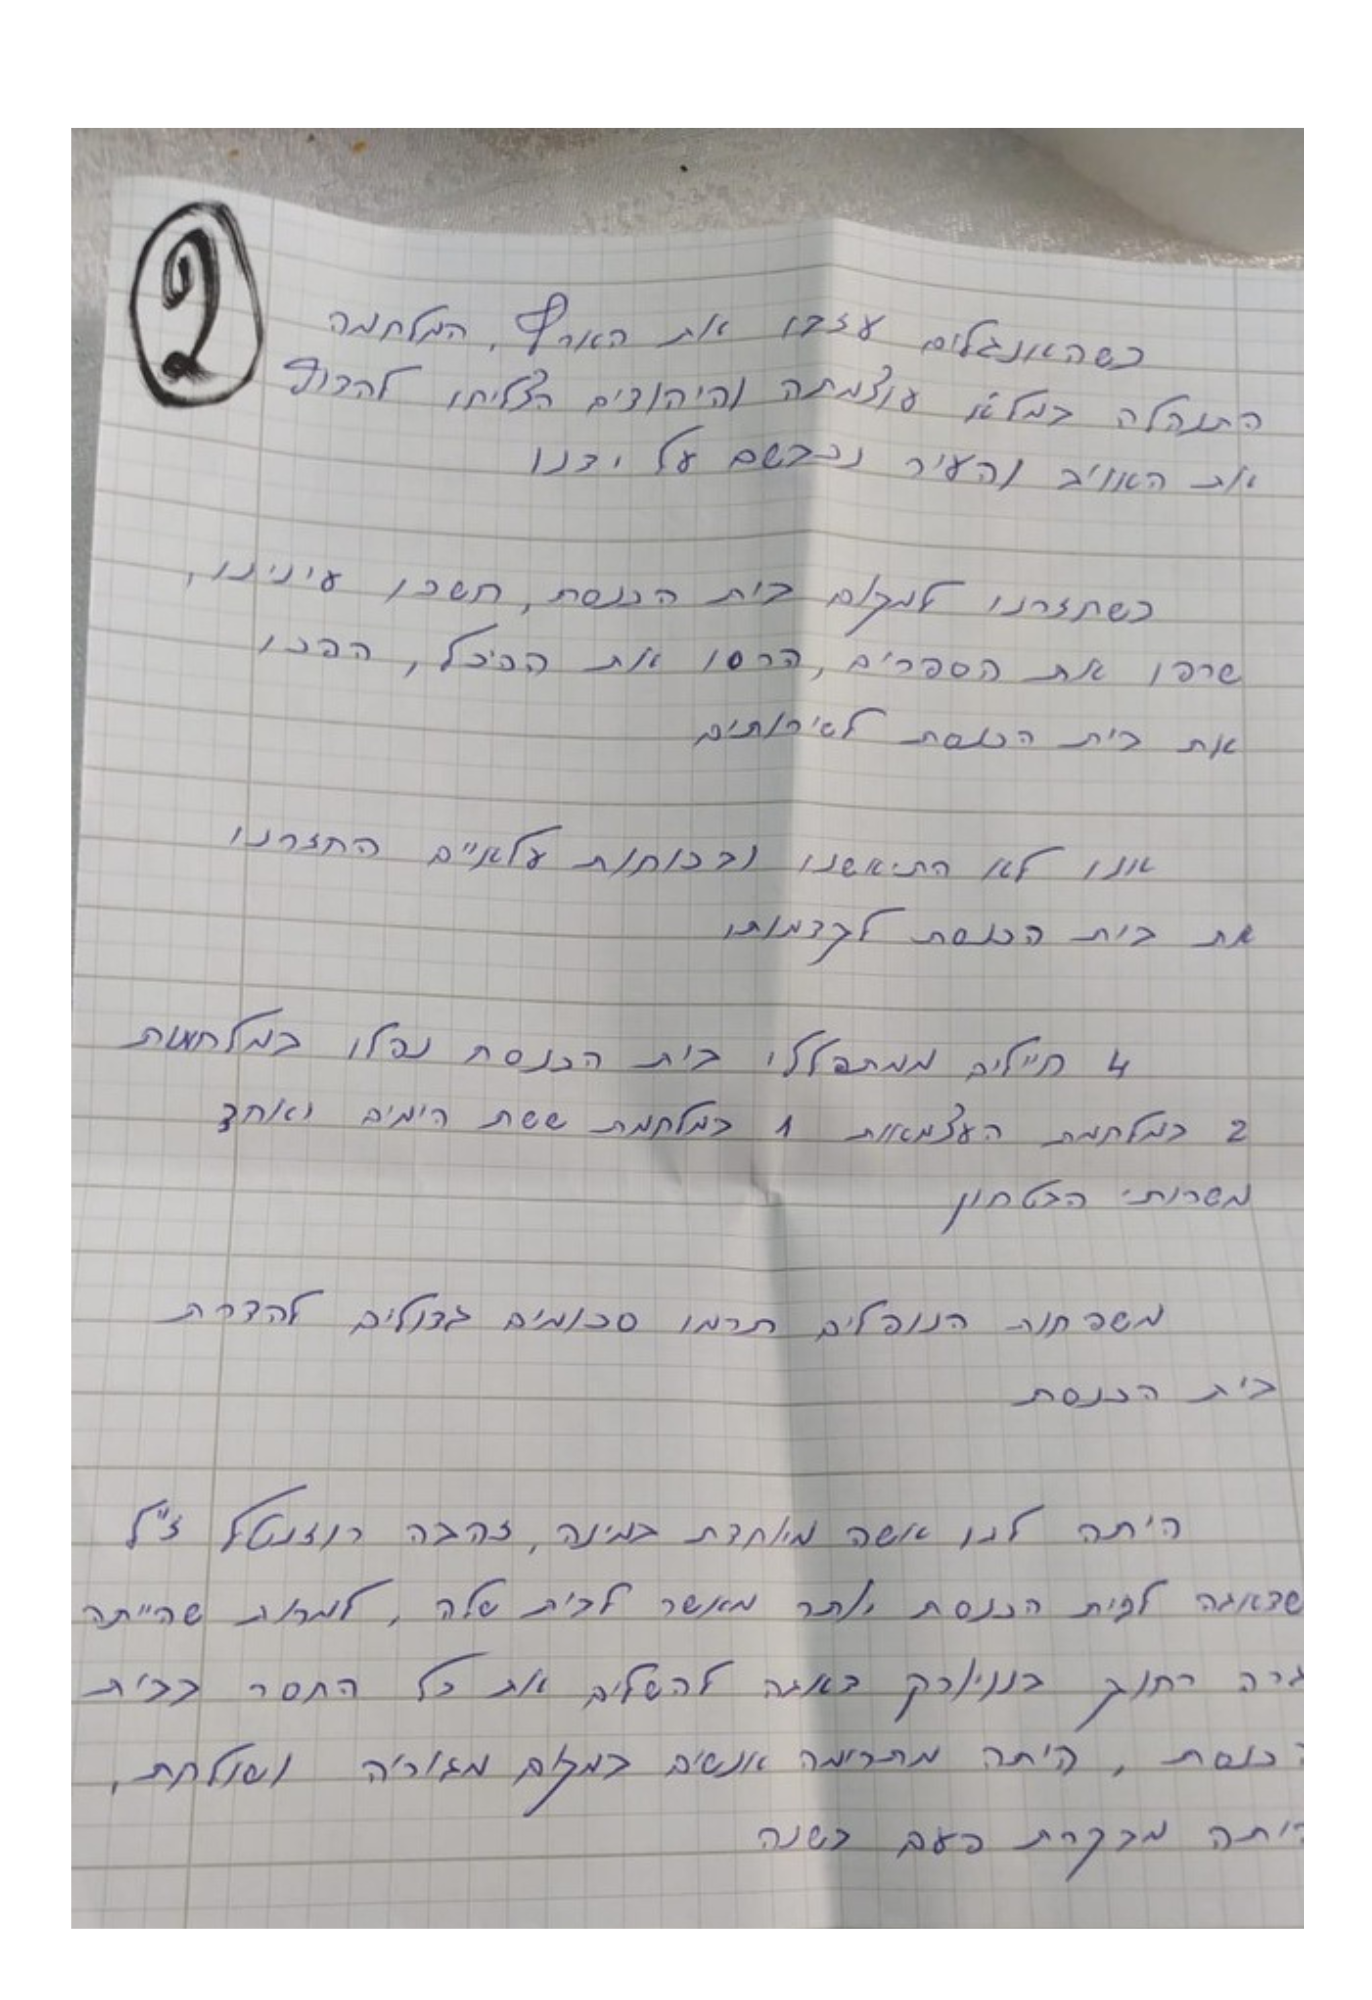 2
כשהאונגלים עזבו את הארץ, המלחמה
התנהלה במלא עוצמתה והיהודים הצליחו להדוף
את האוייב והעיר נכבשם על ידנו
כשחזרנו למקום בית הכנסת, חשכו עינינו,
שרפו את הספרים, הרסו את ההיכל, הפכו
את בית הכנסת לשירותים
אנו לא התיאשנו ובכוחות עלאיים החזרנו
את בית הכנסת לקדמותו
4 חיילים ממתפללי בית הכנסת נפלו במלחמות
2 במלחמת העצמאות 1 במלחמת ששת הימים ואחד
משרותי הבטחון
משפחות הנופלים תרמו סכומים גדולים להדרת
בית הכנסת
היתה לנו אשה מיוחדת במינה, זהבה רוזנטל ז"ל
שדאגה לבית הכנסת יותר מאשר לבית שלה, למרות שהייתה
גרה רחוק בניו יורק דאגה להשלים את כל החסר בבית
הכנסת, היתה מתרימה אנשים במקום מגוריה ושולחת,
היתה מבקרת פעם בשנה